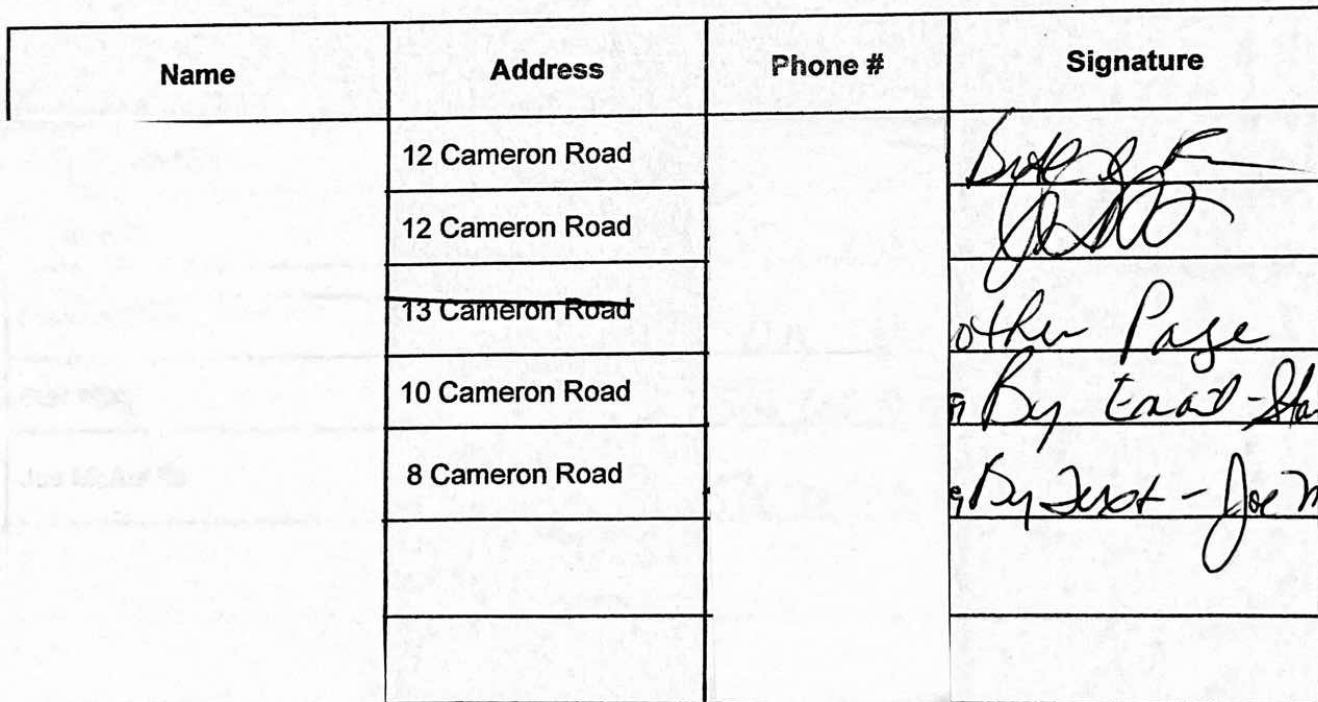 Name Address Phone # Signature
12 Cameron Road
12 Cameron Road
13 Cameron Road other Page
10 Cameron Road By Email - Sta
8 Cameron Road By Text - Joe M